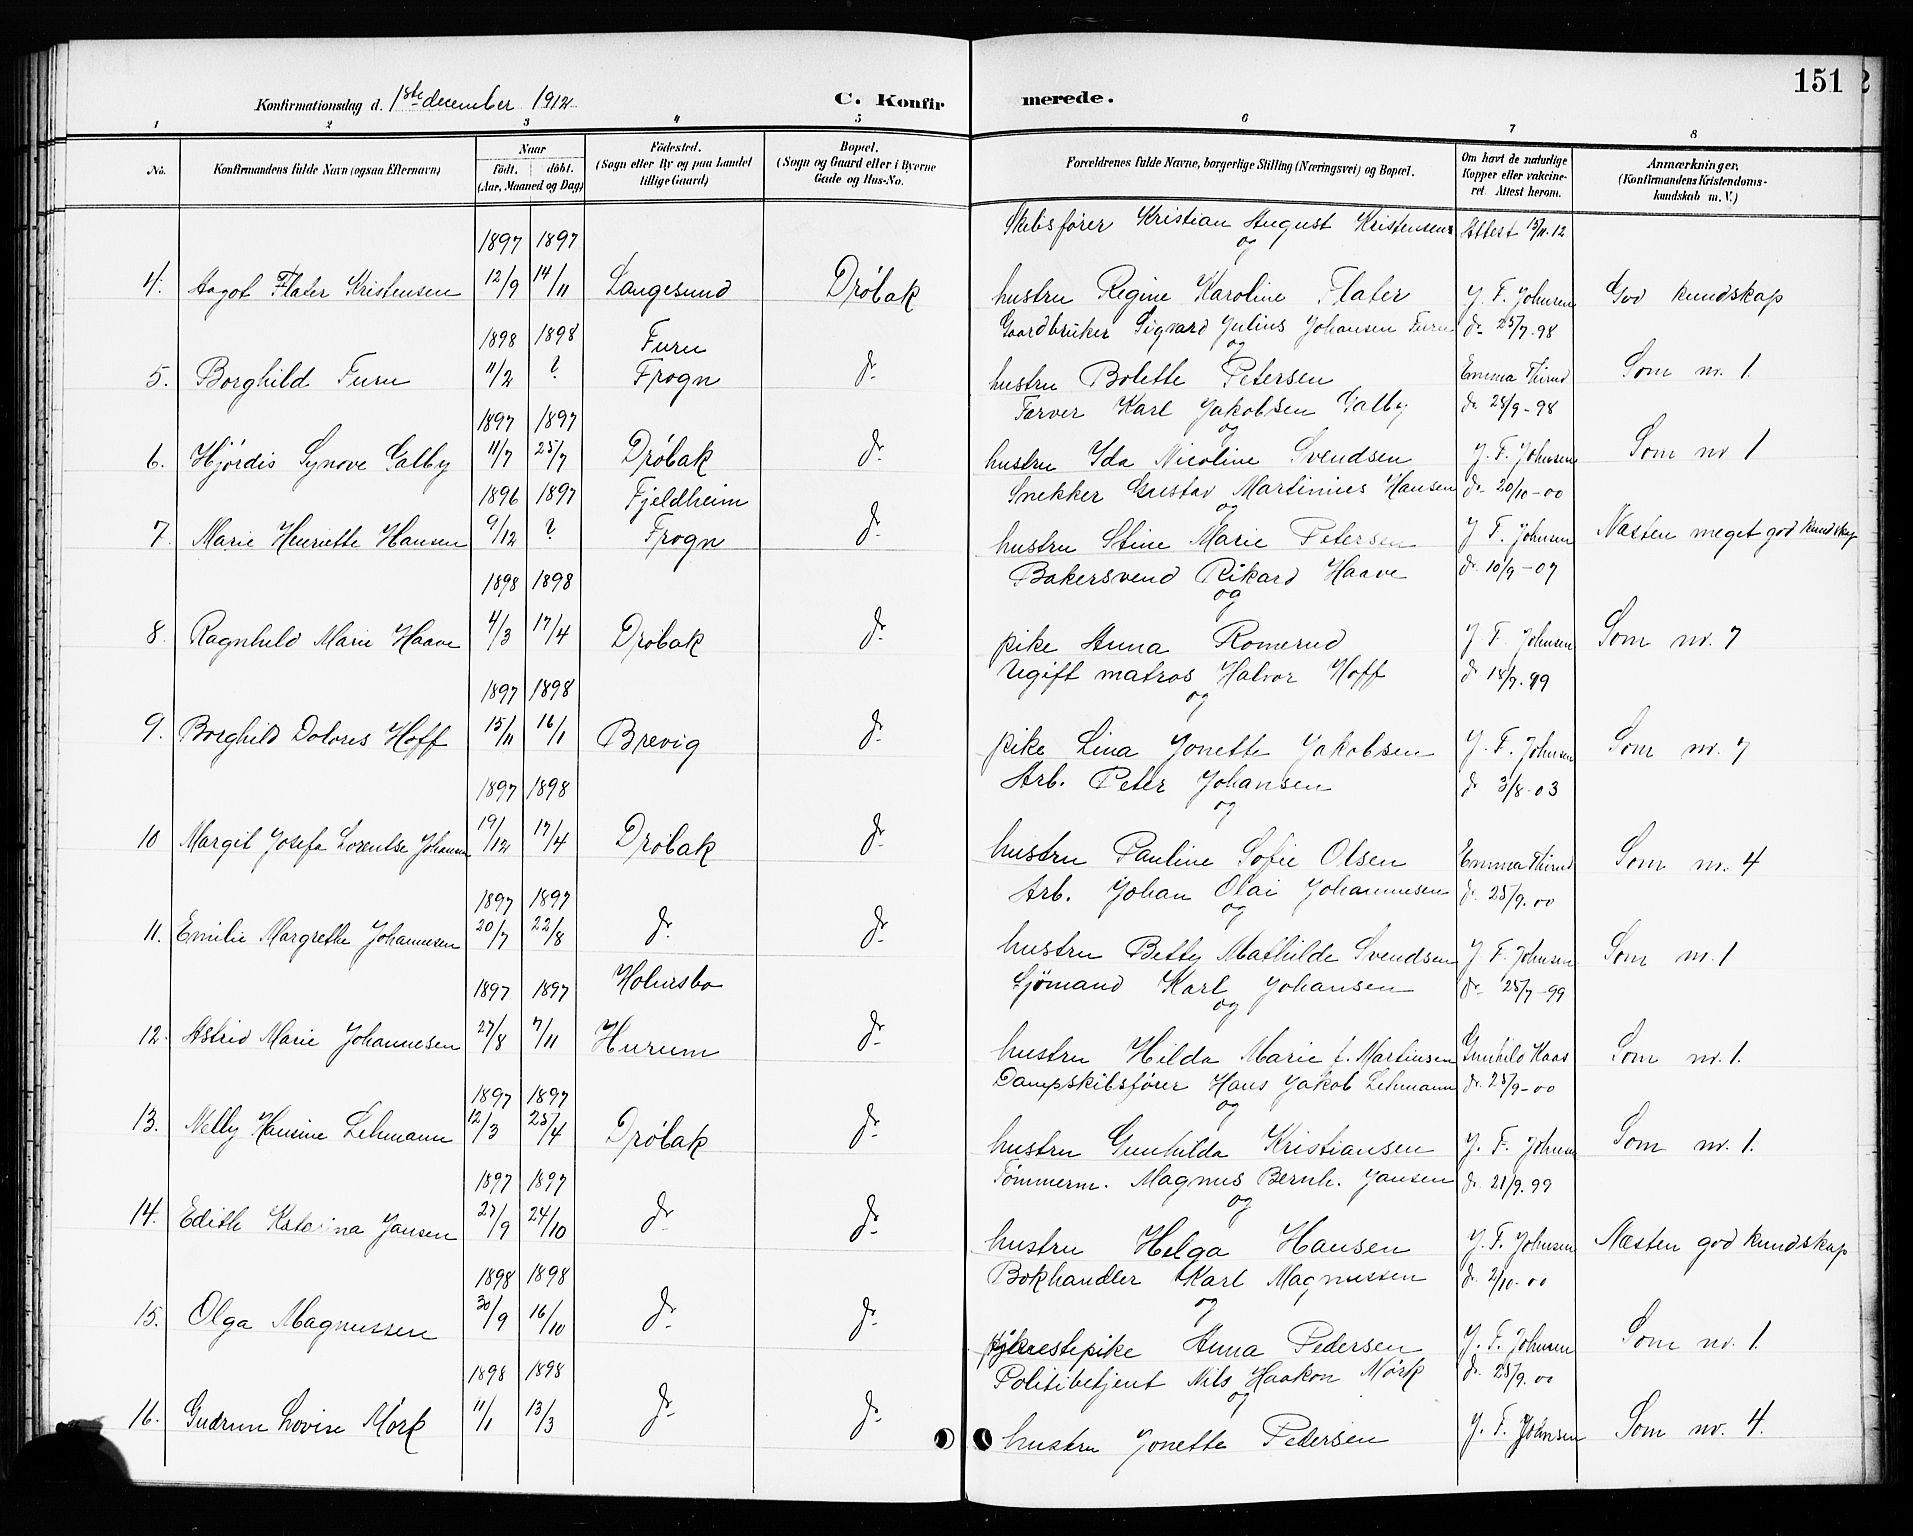 151
Konfirmationsdag d. 1ste december 1912.
C. Konfirmerede.
1 2 3 4 5 6 7 8
No. Konfirmandens fulde Navn (ogsaa Efternavn) Naar født. døbt. (Aar, Maaned og Dag) Fødested. (Sogn eller By og paa Landet tillige Gaard) Bopæl. (Sogn og Gaard eller i Byerne Gade og Hus-No. Forældrenes fulde Navne, borgerlige Stilling (Næringsvei) og Bopæl. Om havt de naturlige Kopper eller vakcineret. Attest herom. Anmærkninger. (Konfirmandens Kristendomskundskab m. V.)
1897 1897 Skibsfører Kristian August Kristensen og Attest 13/11.12
4. Aagot Flater Kristensen 12/9 14/11 Langesund Drøbak hustru Regine Karoline Flater J. F. Johnsen God kundskap
1898 1898 Furu Gaardbruker Sigvard Julius Johansen Furu og do 25/7.98
5. Borghild Furu 11/2 ? Frogn do hustru Bolette Petersen Emma Thirud Som nr. 1.
1897 1897 Farver Karl Jakobsen Galby og do 28/9-98
6. Hjørdis Synøve Galby 11/7 25/7 Drøbak do hustru Ida Nicoline Svendsen J. F. Johnsen Som nr 1
1896 1897 Fjeldheim Snekker Gustav Martinius Hansen og do 20/10-00
7. Marie Henriette Hansen 9/12 ? Frogn do hustru Stine Marie Petersen J F. Johnsen Næsten meget god kundskap
1898 1898 Bakersvend Rikard Haave og do 10/9-07
8. Ragnhild Marie Haave 4/3 17/4 Drøbak do pike Anna Romerud J F Johnsen Som nr. 7
1897 1898 Ugift matros Halvor Hoff og do 18/9.99
9. Borghild Dolores Hoff 15/11 16/1 Brevig do pike Lina Jonette Jakobsen J. F. Johnsen Som nr. 7
1897 1898 Arb. Peter Johansen og do 3/8-03
10 Margit Josefa Lorentse Johansen 19/12 17/4 Drøbak do hustru Pauline Sofie Olsen Emma Thirud Som nr. 4
1897 1897 Arb. Johan Olai Johannesen og do 25/9.00
11. Emilie Margrethe Johannesen 20/7 22/8 do do hustru Betty Mathilde Svendsen J F. Johnsen Som nr. 1
1897 1897 Holmsbo Sjømand Karl Johansen og do 25/7-99
12. Astrid Marie Johannesen 27/8 7/11 Hurum do hustru Hilda Marie f. Martinsen Gunhild Haas Som nr. 1.
1897 1897 Dampskibsfører Hans Jakob Lehmann og do 25/9-00
13. Nelly Hansine Lehmann 12/3 25/4 Drøbak do hustru Gunhilda Kristiansen J. F. Johnsen Som nr. 1.
1897 1897 Tømmerm. Magnus Bernh. Jansen og do 21/9.99
14. Edith Katarina Jansen 27/9 24/10 do do hustru Helga Hansen J. F. Johnsen Næsten god kundskap
1898 1898 Bokhandler Karl Magnussen og do 2/10-00
15. Olga Magnussen 30/9 16/10 do do tjenestepike Anna Pedersen J. F. Johnsen Som nr. 1.
1898 1898 Politibetjent Nils Haakon Mørk og do 25/9.00
16. Gudrun Lovise Mørk 11/1 13/3 do do hustru Jonette Pedersen J. F. Johnsen Som nr. 4.